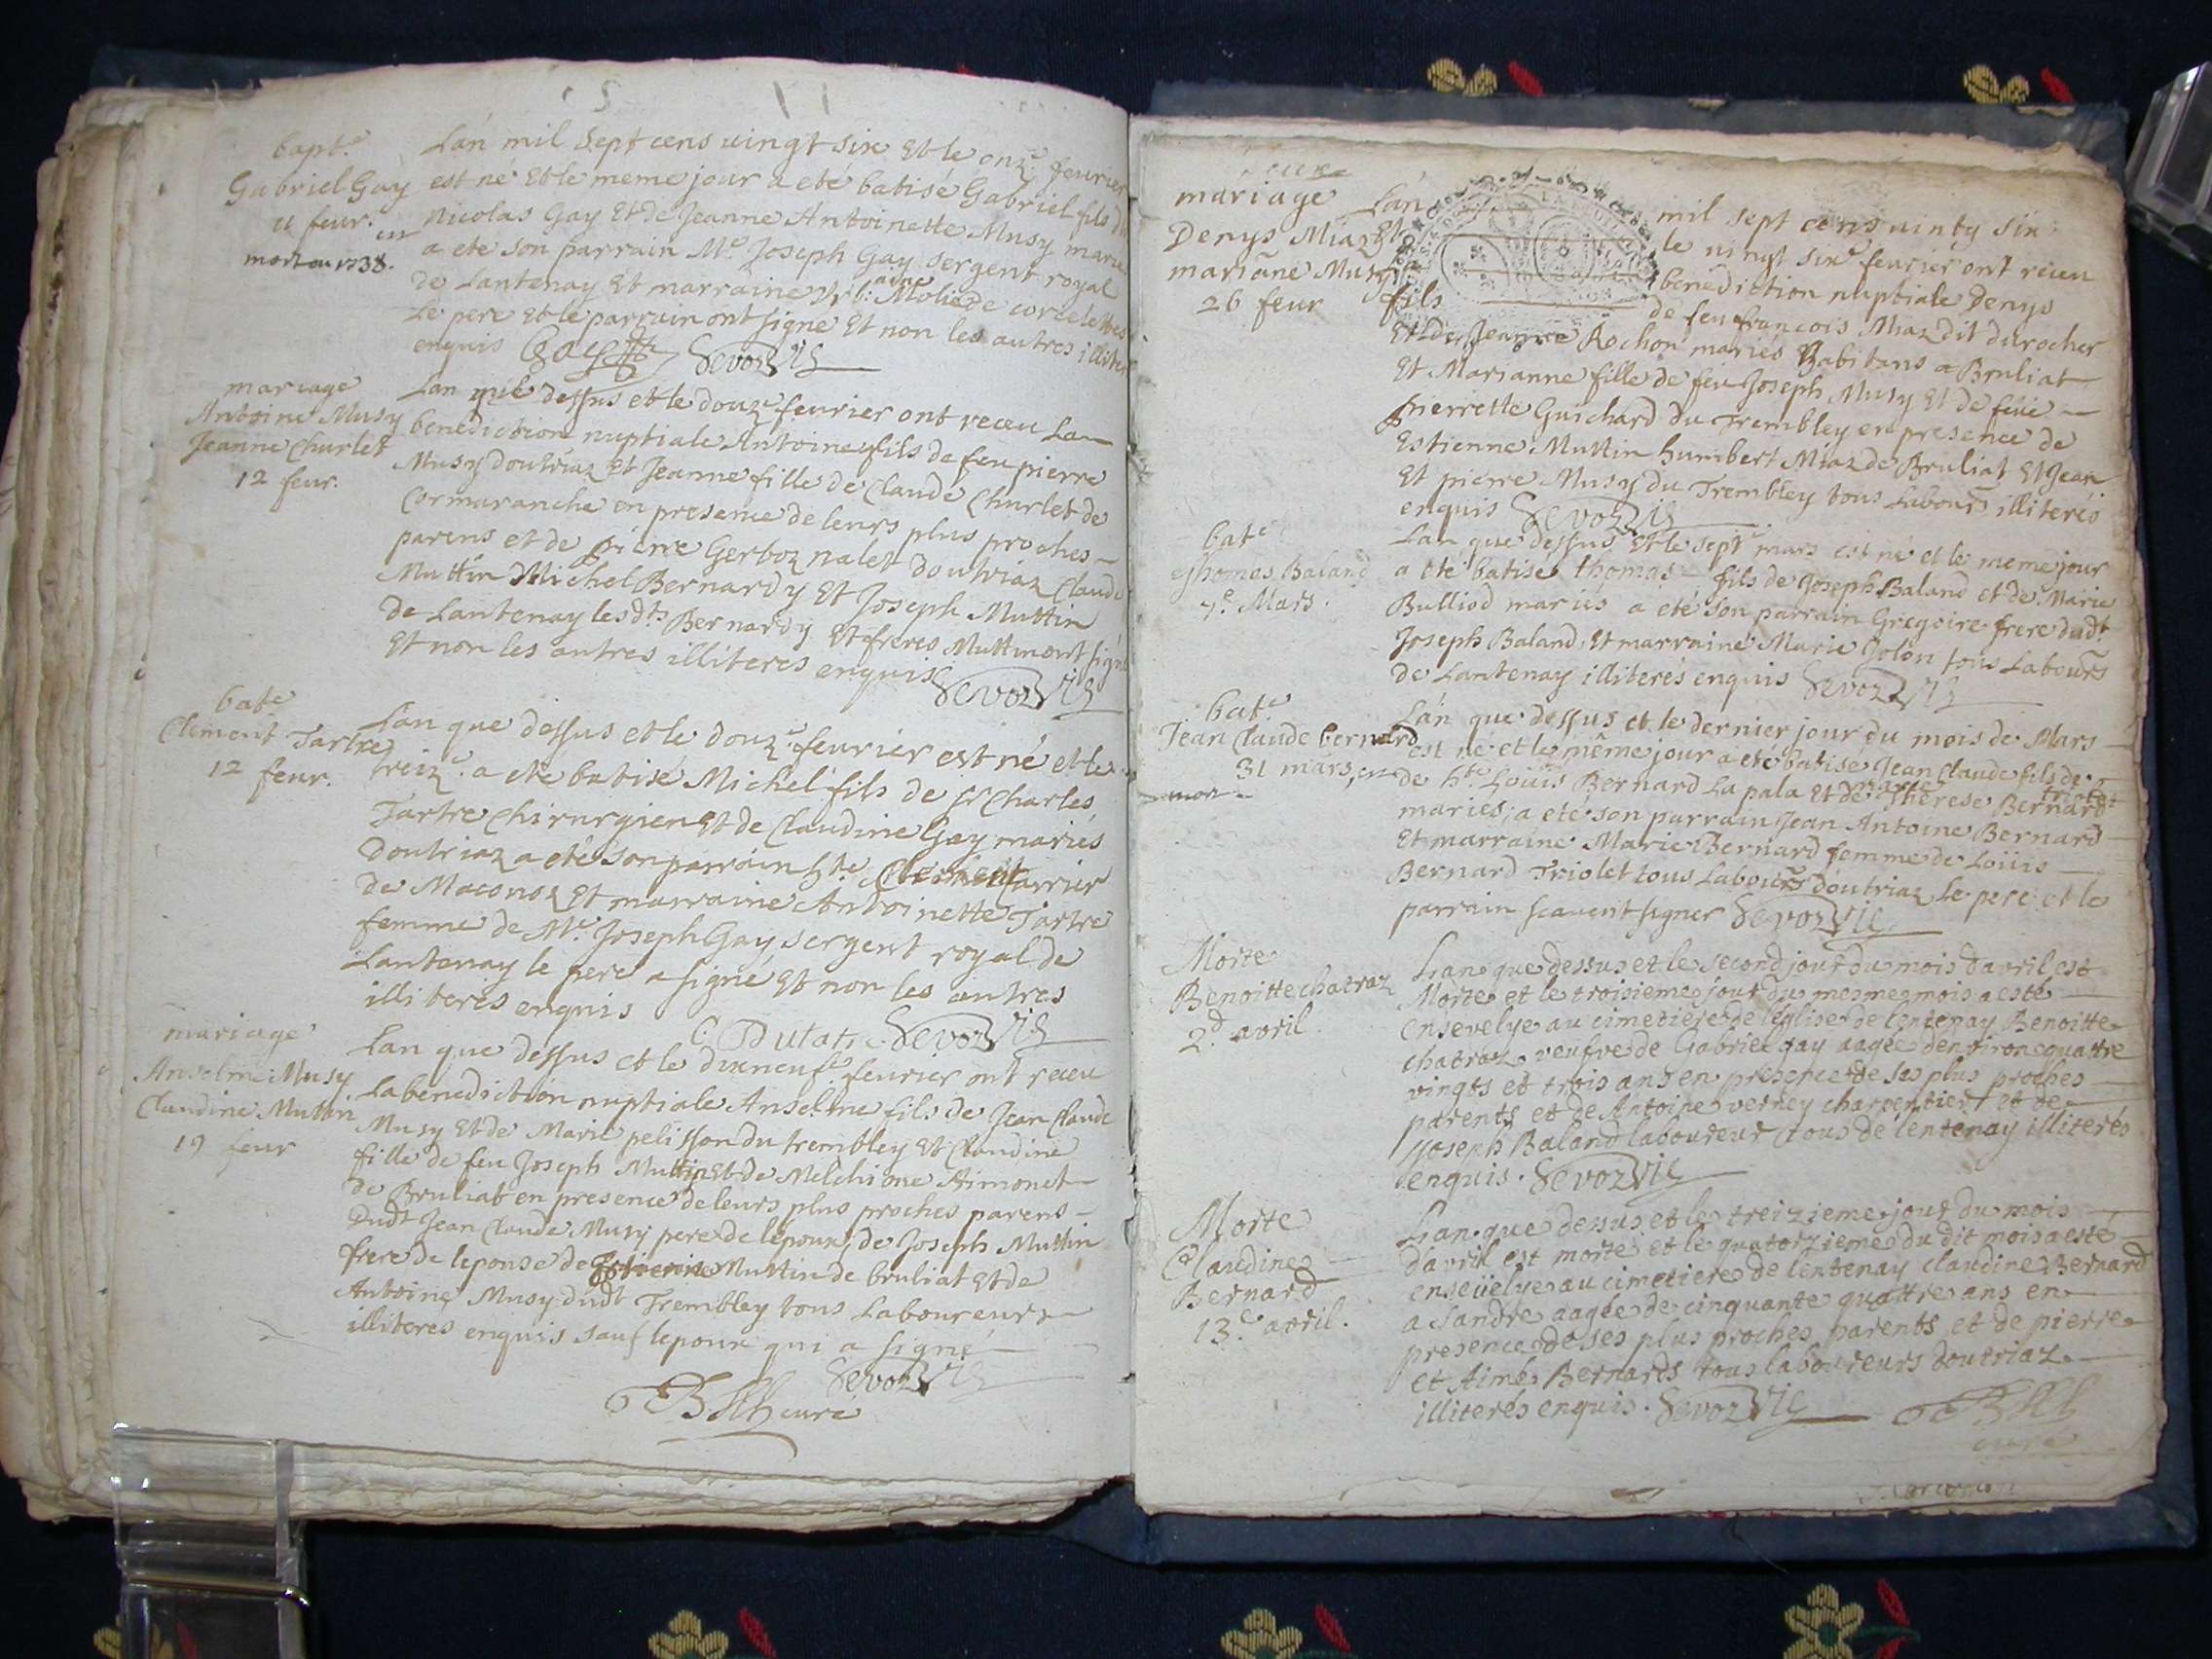 bapt.e
Gabriel Gay
11 feur.
mort en 1738.
Lán mil sept cens uingt six Et le onz.e feurier
est né Et le meme jour a eté batisé Gabriel fils de
Nicolas Gay Et de Jeanne Antoinette Musy mariés
a eté son parrain M.e Joseph Gay sergent royal
de Lantenay Et marraine de corcelettes
Le pere Et le parrain ont signé Et non les autres illiterés
enquis Gay Sevoz Vic
mariage
Antoine Musy
Jeanne Churlet
12 feur.
Lan que dessus et le douz.e feurier ont receu La
benediction nuptiale Antoine fils de feu pierre
Musy doutriaz Et Jeanne fille de Claude Churlet de
Cormaranche en presence de leurs plus proches
parens et de pierre Gerboz nalet doutriaz Claude
Muttin Michel Bernardy Et Joseph Muttin
de Lantenay les d.ts Bernardy Et freres Muttin ont signé
Et non les autres illiteres enquis Sevoz Vic
bat.e
Clement Tartre
12 feur.
Lan que dessus et le douz.e feurier est né et le
treiz.e a eté batisé Michel fils de sr Charles
Tartre Chirurgien Et de Claudine Gay mariés
doutriaz a eté son parrain h.te Clement Carrier
de Maconoz Et marraine Antoinette Tartre
femme de M.e Joseph Gay sergent royal de
Lantenay le pere a signé Et non les autres
illiteres enquis
Sevoz Vic
mariage
Anselme Musy
Claudine Muttin
19 feur
Lan que dessus et le dixneuf.e feurier ont receu
La benediction nuptiale Anselme fils de Jean Claude
Musy Et de Marie pelisson du trembley Et Claudine
fille de feu Joseph Muttin Et de Melchione Aimonet
de Bruliat en presence de leurs plus proches parens
dudt Jean Claude Musy pere de lépoux, de Joseph Muttin
frere de lepouse de Estienne Muttin de bruliat Et de
Antoine Musy dudt Trembley tous Laboureurs
illiteres enquis sauf lepoux qui a signé
Sevoz Vic
curé
mariage
Denys Miaz Et
mariane Musy
26 feur
Lán mil sept cens uintg six
le uingt six.e feurier ont receu
benediction nuptiale Denys
fils de feu francois Miaz dit durocher
Et de Jeanne Rochon mariés habitans a Bruliat
Et Marianne fille de feu Joseph Musy Et de feue
pierrette Guichard du Trembley en presence de
Estienne Muttin humbert Miaz de Bruliat Et Jean
Et pierre Musy du Trembley tous Labours illiterés
enquis Sevoz Vic
bat.e
Thomas Baland
7.e Mars.
Lan que dessus Et le sept.e mars est né et le meme jour
a eté batisé thomas fils de Joseph Baland et de Marie
Bulliod mariés a eté son parrain Gregoire frere dudt
Joseph Baland, Et marraine Marie Jolon tous Labours
de Lantenay illiterés enquis Sevoz Vic
bat.e
Jean Claude bernard
31 mars,
Lán que dessus et le dernier jour du mois de Mars
est né et le même jour a eté batisé Jean Claude fils de
de h.te Louis Bernard La pala Et de Therese Bernard triolet
mariés; a eté son parrain Jean Antoine Bernard
Et marraine Marie Bernard femme de Loüis
Bernard Triolet tous Labours doutriaz Le pere et le
parrain scauent signer Sevoz Vic
Morte
Benoitte chatraz
2.d avril
Lan que dessus et le second jour du mois davril est
Morte et le troisieme jour du mesme mois a esté
ensevelye au cimetiere de leglise de lentenay Benoitte
chatraz veufve de Gabriel gay aagée denviron quattre
vingts et trois ans en presence de ses plus proches
parents et de Antoine verney charpentier et de
Joseph Baland laboureur tous de lentenay illiterés
enquis. Sevoz Vic
Morte
Claudine
Bernard
13.e avril.
Lan que dessus et le treizieme jour du mois
davril est morte et le quatorzieme du dit mois a esté
enseüelye au cimetiere de lentenay claudine Bernard
a Sandre aagée de cinquante quattre ans en
presence de ses plus proches parents et de pierre
et Aimé Bernards tous laboureurs doutriaz
illiterés enquis. Sevoz Vic
curé